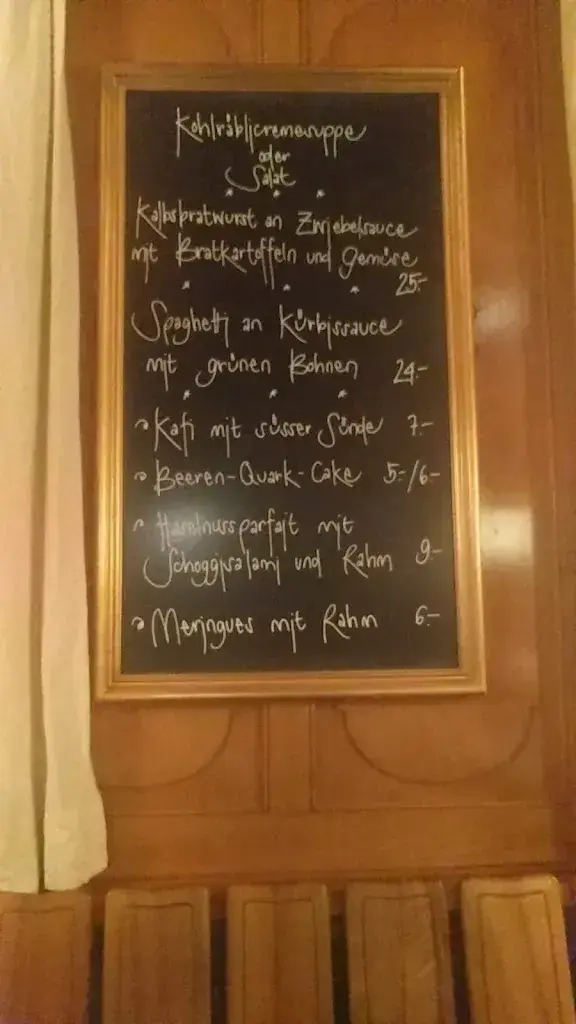 Kohlräblicremesuppe
oder
Salat
* * *
Kalbsbratwurst an Zwiebelsauce
mit Bratkartoffeln und Gemüse
25.-
* * *
Spaghetti an Kürbissauce
mit grünen Bohnen 24.-
* * *
Kafi mit süsser Sünde 7.-
Beeren-Quark-Cake 5.-/6.-
Haselnussparfait mit
Schoggisalami und Rahm 9.-
Meringues mit Rahm 6.-